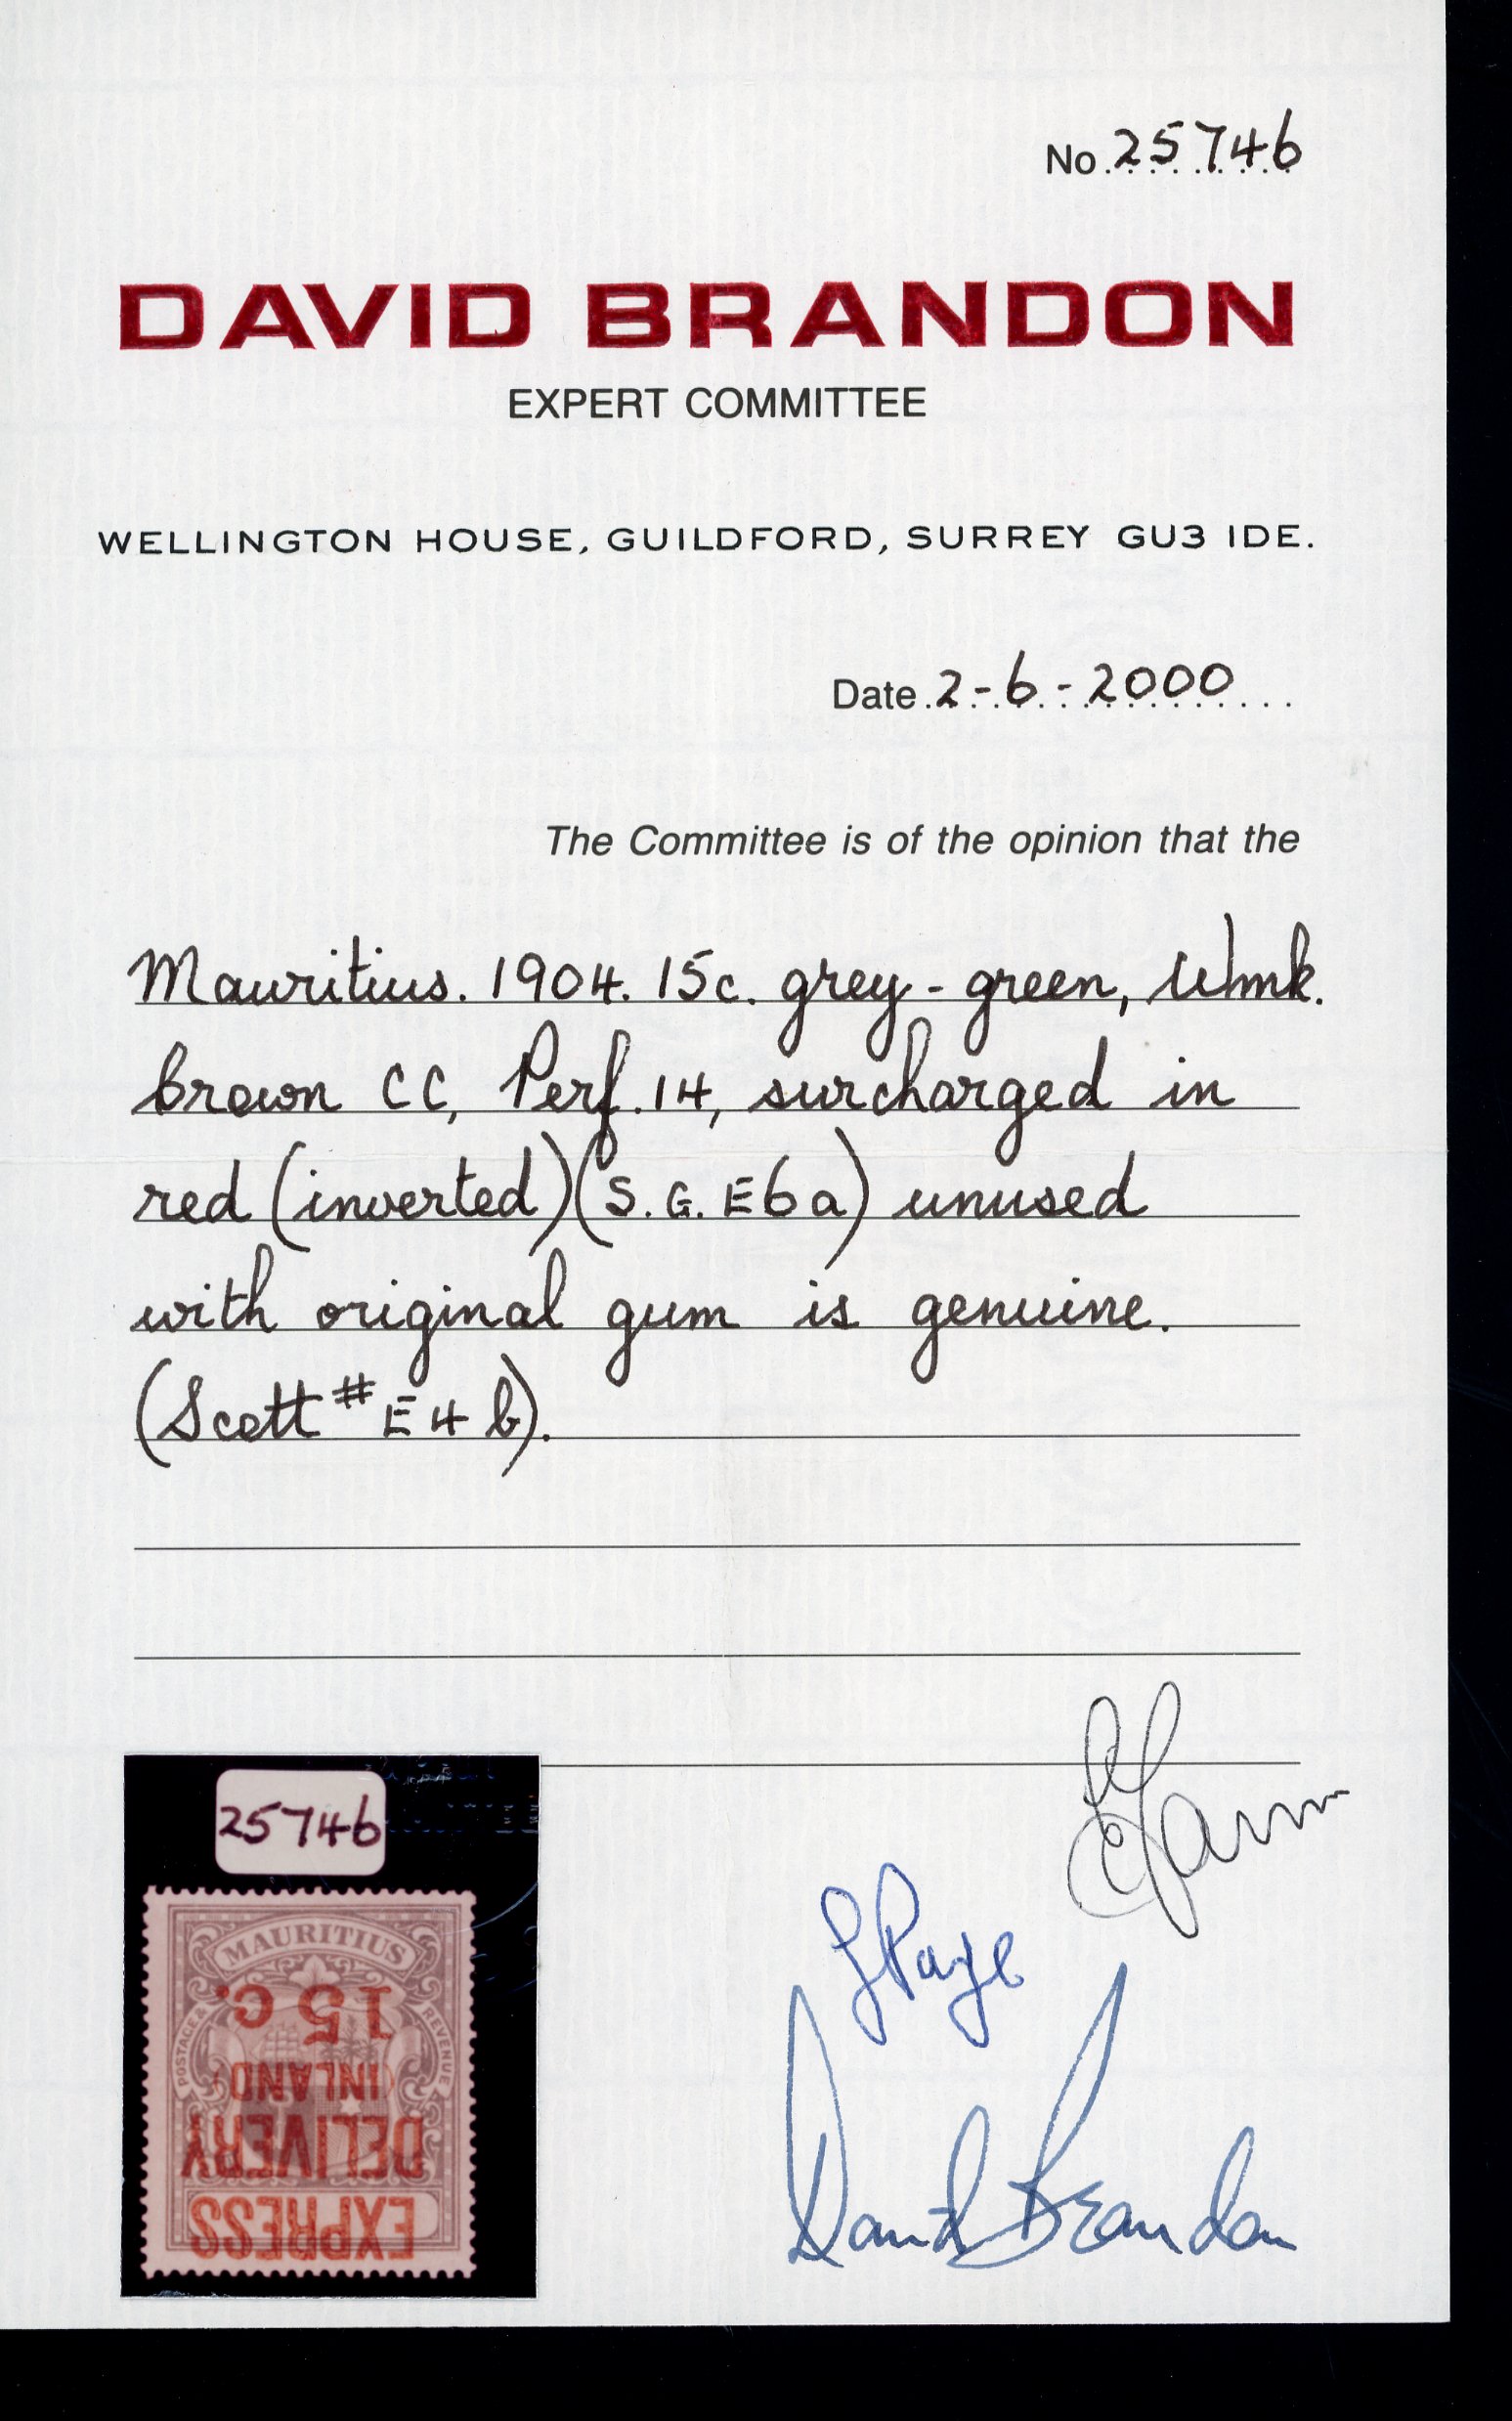 No. 25746
DAVID BRANDON
EXPERT COMMITTEE
WELLINGTON HOUSE, GUILDFORD, SURREY GU3 IDE.
Date 2-6-2000
The Committee is of the opinion that the
Mauritius. 1904. 15c. grey-green, Wmk.
Crown CC, Perf. 14, surcharged in
red (inverted) (S.G. E6a) unused
with original gum is genuine.
(Scott # E4b).
25746
MAURITIUS
POSTAGE &
REVENUE
15 c.
(INLAND)
DELIVERY
EXPRESS
David Brandon